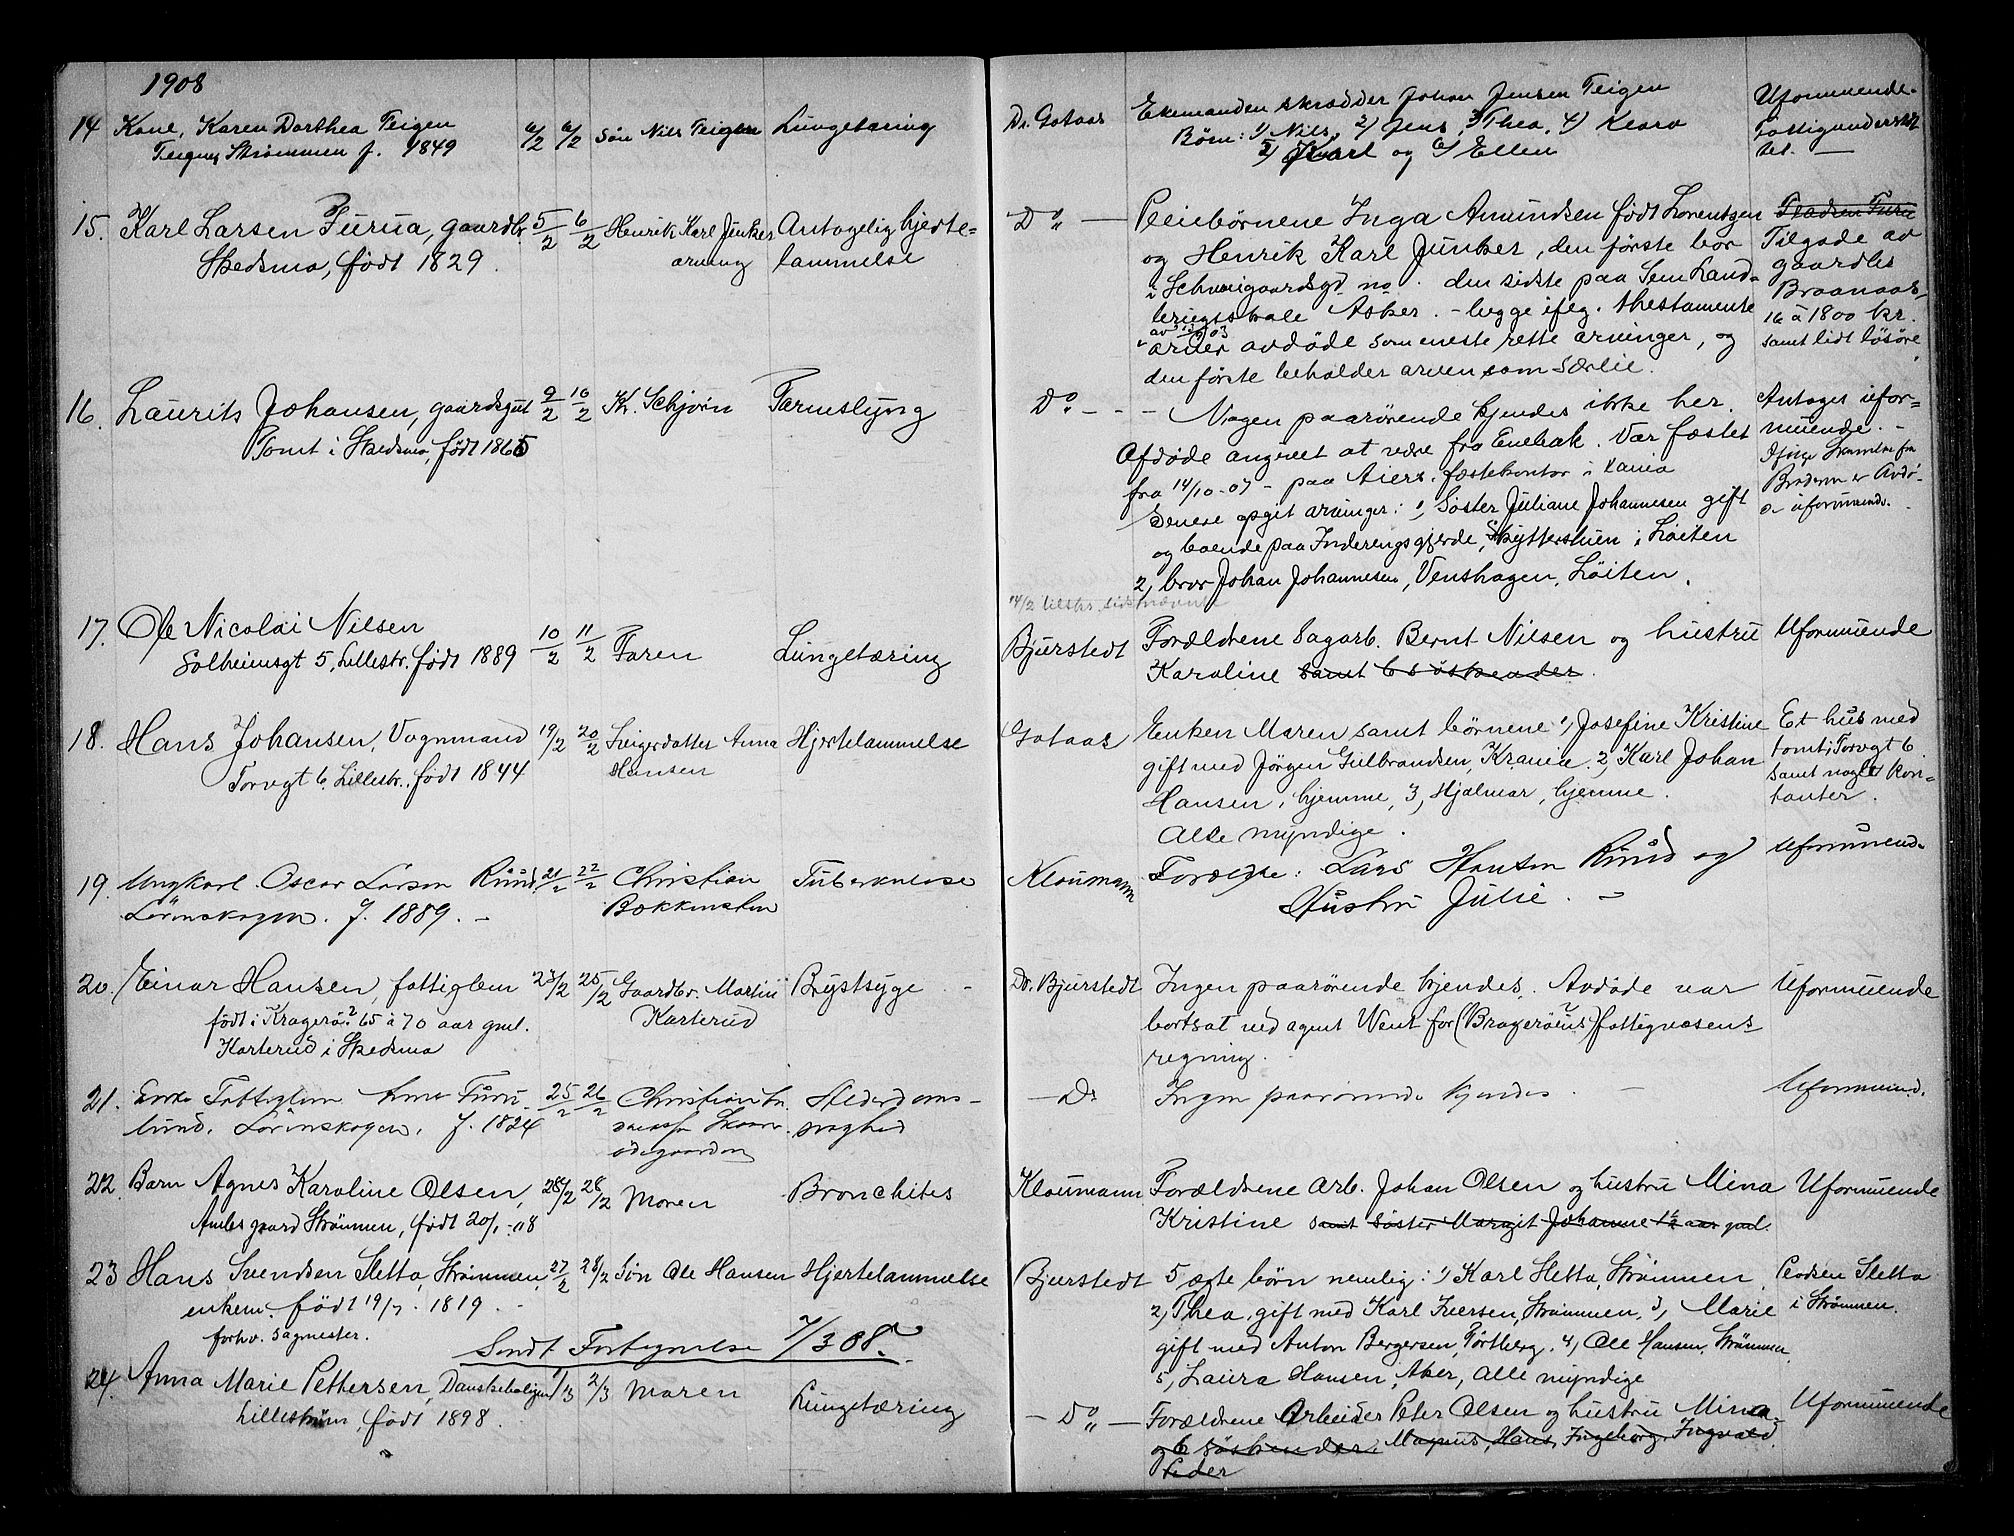 1908
14 Kone, Karen Dorthea Teigen 6/2 6/2 Søn Nils Teigen Lungetæring
Teigen, Strømmen f. 1849
Dr. Gotaas Ekemanden skrædder Johan Jensen Teigen
Børn: 1) Nils, 2) Jens, 3) Thea, 4) Klara
5) Karl og 6) Ellen
Uformuende.
Fattigunderstøt
tet. —
15. Karl Larsen Furua, gaardbr. 5/2 6/2 Henrik Karl Junker Antagelig hjerte=
Skedsmo, født 1829. arving lammelse
Do — Pleiebørnene Inga Amundsen født Lorentzen
og Henrik Karl Junker, den første bor
i Schweigaardsgd no . den sidste paa Sem Land-
brugsskole Asker. - begge ifølg. thestamente
av 03
arver avdøde som eneste rette arvinger, og
den første beholder arven som særeie.
Pladsen Furu
Tilgode av
gaardbr
Braanaas,
16 à 1800 kr.
samt lidt løsøre.
16. Laurits Johansen, gaardsgut 9/2 10/2 Kr. Schjønn Tarmslyng
Tomt i Skedsmo, født 1865
Do - - - Nogen paarørende kjendes ikke her.
Afdøde angivet at være fra Enebak. Var fæstet
fra 14/10-07 - paa Aiers fæstekontor i Kania
Senere opgit arvinger: 1, Søster Juliane Johannesen gift
og boende paa Inderengsgjerde, Skytterstuen i Løiten
2, bror Johan Johannesen, Venshagen, Løiten.
14/2 tilskr. sidstnævnte
Antages ufor=
muende. -
Ifølge skrivelse fra
Broderen er Avdø-
de uformuende.
17. Ole Nicolai Nilsen 10/2 11/2 Faren Lungetæring
Solheimsgt 5, Lillestr. født 1889
Bjurstedt Forældrene Sagarb. Bernt Nilsen og hustru
Karoline samt 6 søskender.
Uformuende
18. Hans Johansen, Vognmand 19/2 20/2 Svigerdatter Anna Hjertelammelse
Torvgt 6, Lillestr., født 1844 Hansen
Gotaas Enken Maren samt børnene 1, Josefine Kristine
gift med Jørgen Gulbrandsen, Krania. 2, Karl Johan
Hansen, hjemme, 3, Hjalmar, hjemme.
Alle myndige.
Et hus med
tomt i Torvgt 6
samt nogle kon-
tanter.
19. Ungkarl Oscar Larsen Ruud, 21/2 22/2 Christian Tuberkulose
Lørenskogen. f. 1889. - Bekkensten
Kloumann Forældre: Lars Hansen Ruud og
Hustru Julie. -
Uformuende
20. Einar Hansen, fattiglem 23/2 25/2 Gaardbr. Martin Brystsyge -
født i Kragerø? 65 à 70 aar gml. Karterud
Karterud i Skedsmo
Dr. Bjurstedt Ingen paarørende kjendes. Avdøde var
bortsat ved agent Went for (Bragerøens?) fattigvæsens
regning.
Uformuende
21. Enke Fattiglem Anne Furu- 25/2 26/2 Christian Alderdoms-
lund, Lørenskogen, f. 1824 svaghed
- Do Ingen paarørende kjendes. -
Uformuend.
22. Barn Agnes Karoline Olsen, 28/2 28/2 Moren Bronchites
gaard Strømmen, født 20/1-08
Kloumann Forældrene Arb. Johan Olsen og hustru Mina
Kristine samt søster Margit Johanne 1½ aar gml.
Uformuende
23 Hans Svendsen Sletta, Strømmen, 27/2 28/2 Søn Ole Hansen Hjertelammelse
enkem. født 19/7 - 1819.
forhv. sagmester.
Bjurstedt 5 ægte børn nemlig: 1) Karl Sletta, Strømmen
2, Thea gift med Karl Iversen, Strømmen, 3, Marie
gift med Anton Bergersen, Tørtberg. 4, Ole Hansen, Strømmen,
5, Laura Hansen, Aker, alle myndige
Pladsen Sletta
i Strømmen.
Sendt Fortegnelse 7/3 08.
24. Anna Marie Pettersen, Danskeboligen 1/3 2/3 Moren Lungetæring
Lillestrøm, født 1898.
- Do — Forældrene Arbeider Peter Olsen og hustru Mina
og 6 søskender: Magnus, Hans, Ingeborg, Ingvald,
Peder
Uformuende